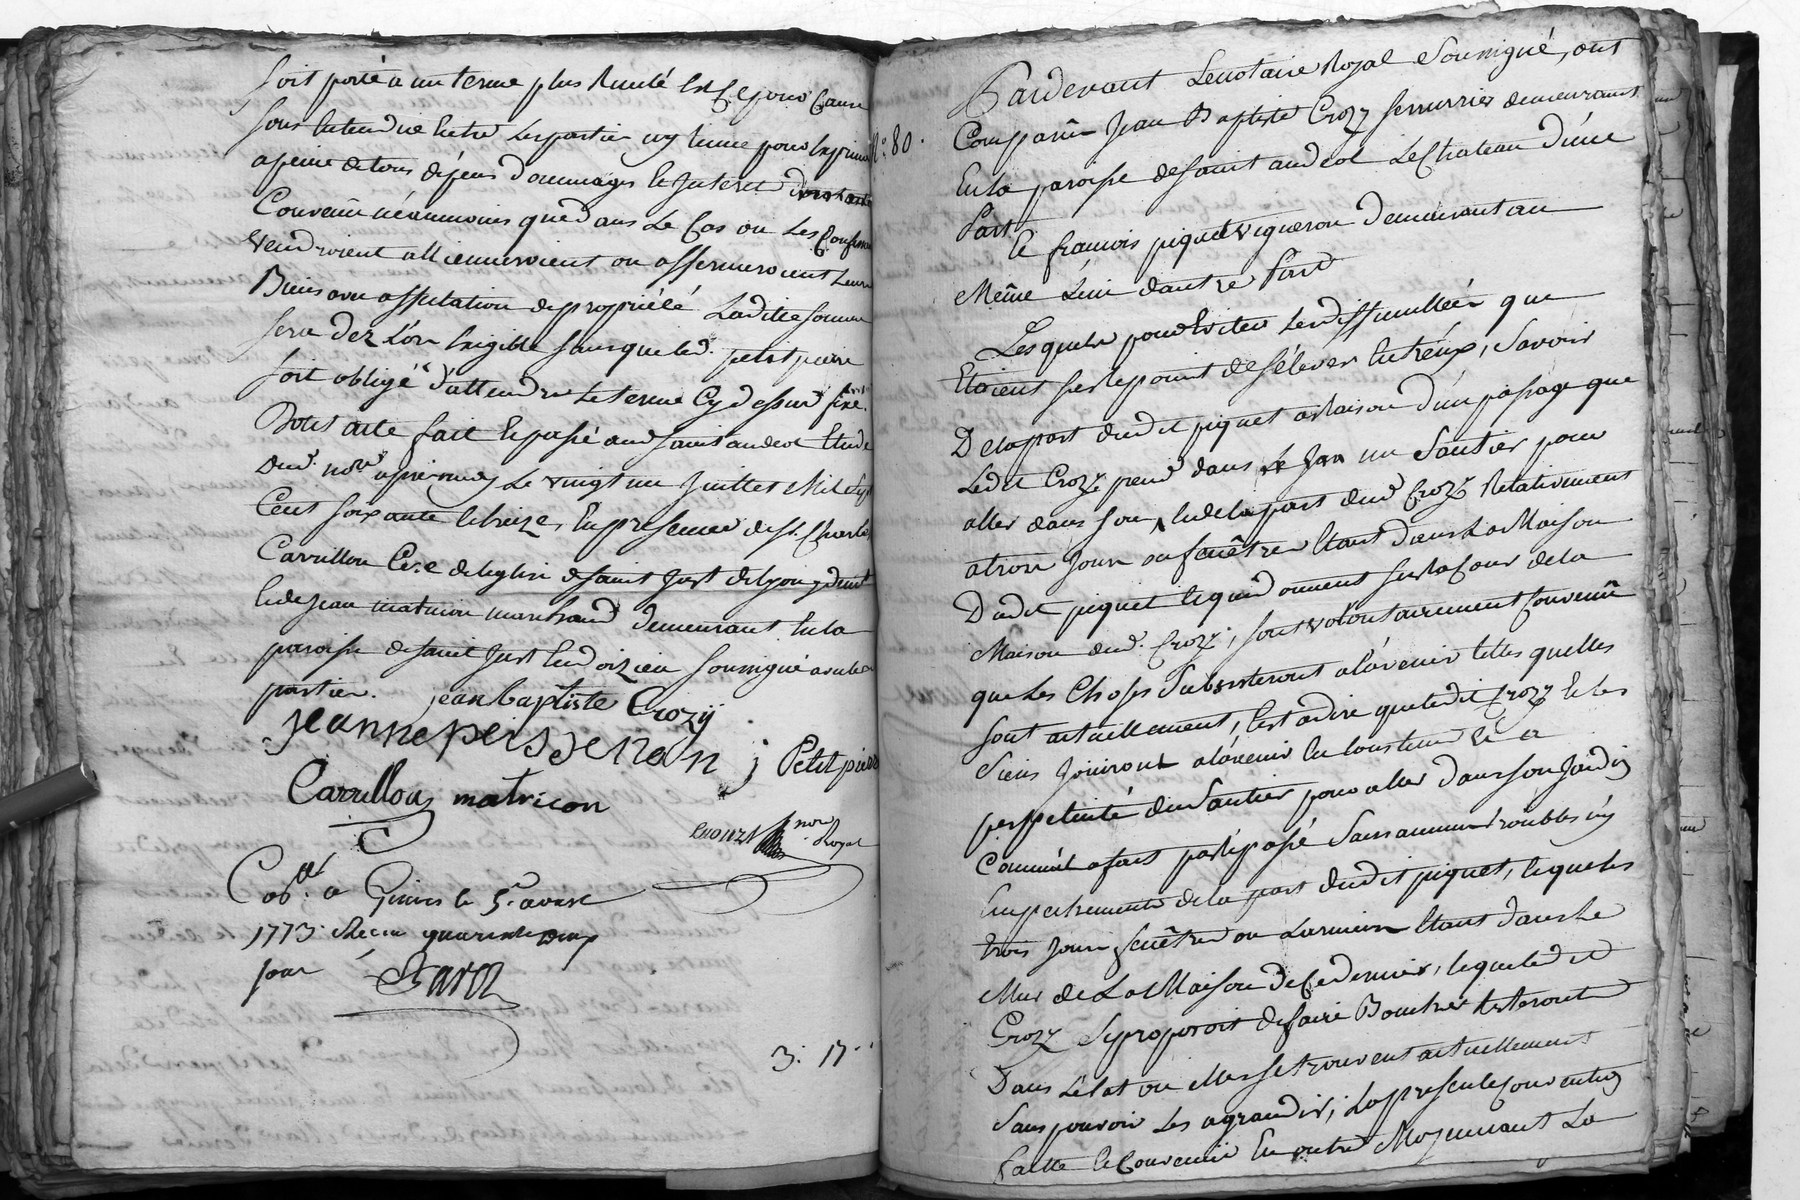 soit porté a un terme plus Reculé Est ce pour Cause
sous Entendue Entre Les parties
a peine de tous dépens Dommages Et Interet
Convenu néammoins que dans Le Cas ou Les
Vendroient allienneroient ou affermeroient Leurs
Biens avec affectation de propriété Ladite somme
sera dez Lors Exigible sans que led. petit pierre
soit obligé d'attendre Le terme Cy dessus fixé.
Dont acte fait Et passé aud saint andeol Etude
dud. nore apres midy Le vingt un Juillet Mil Sept
Cent soixante et treize, En presence de sr. Charles
Carrillon Cle. de leglise de saint Just de lyon y demt
Et de jean matricon marchand Demeurant En la
paroisse de saint Just En doizieu soussigné avec les
parties. jean baptiste Crozy
jeanne peissenon j Petit pierre
Carrillon matricon
nore Royal
Cole. a Giviers le 5e. aoust
1773. Recu quarente
sous Baroz
3. 17.
N°. 80.
Pardevant Le notaire Royal Soussigné, ont
Comparu Jean Baptiste Crozy serrurier demeurant
En la paroisse de saint andeol Le Chateau D'une
Part
Et francois piquet vigneron Demeurant au
Même Lieu d'autre Part
Lesquels pour Eviter Les difficultées que
Etoient sur le point de s'élever Entréux, Savoir
De la part dudit piquet a Raison D'un passage que
Ledit Crozy prend dans un Santier pour
aller dans son Et de la part dud Crozy Relativement
a trois Jours ou fenêtres Etant Dans La Maison
Dudit piquet Et qui donnent sur la Cour de la
Maison dud. Crozy; sont volontairement Convenû
que Les Choses Subsisteront a l'avenir telles quelles
sont actuellement, C'est adire que ledit Crozy Et les
Siens Joüiront a l'avenir En Coustume Et a
perpetuité du Santier pour aller Dans Son Jardin
Comme il a fait par le passé Sans aucun troubles ny
Empechements de la part dudit piquet, Et que les
trois Jours, fenêtres ou Larmiers Etant dans Le
Mur de La Maison de Ce dernier, Et que ledit
Crozy Se proposoit de faire Boucher Resteront
Dans L'etat ou Elles se trouvent actuellement
Sans pouvoir Les agrandir; La presente Convention
faitte Et Convenue En outre Moyennant La